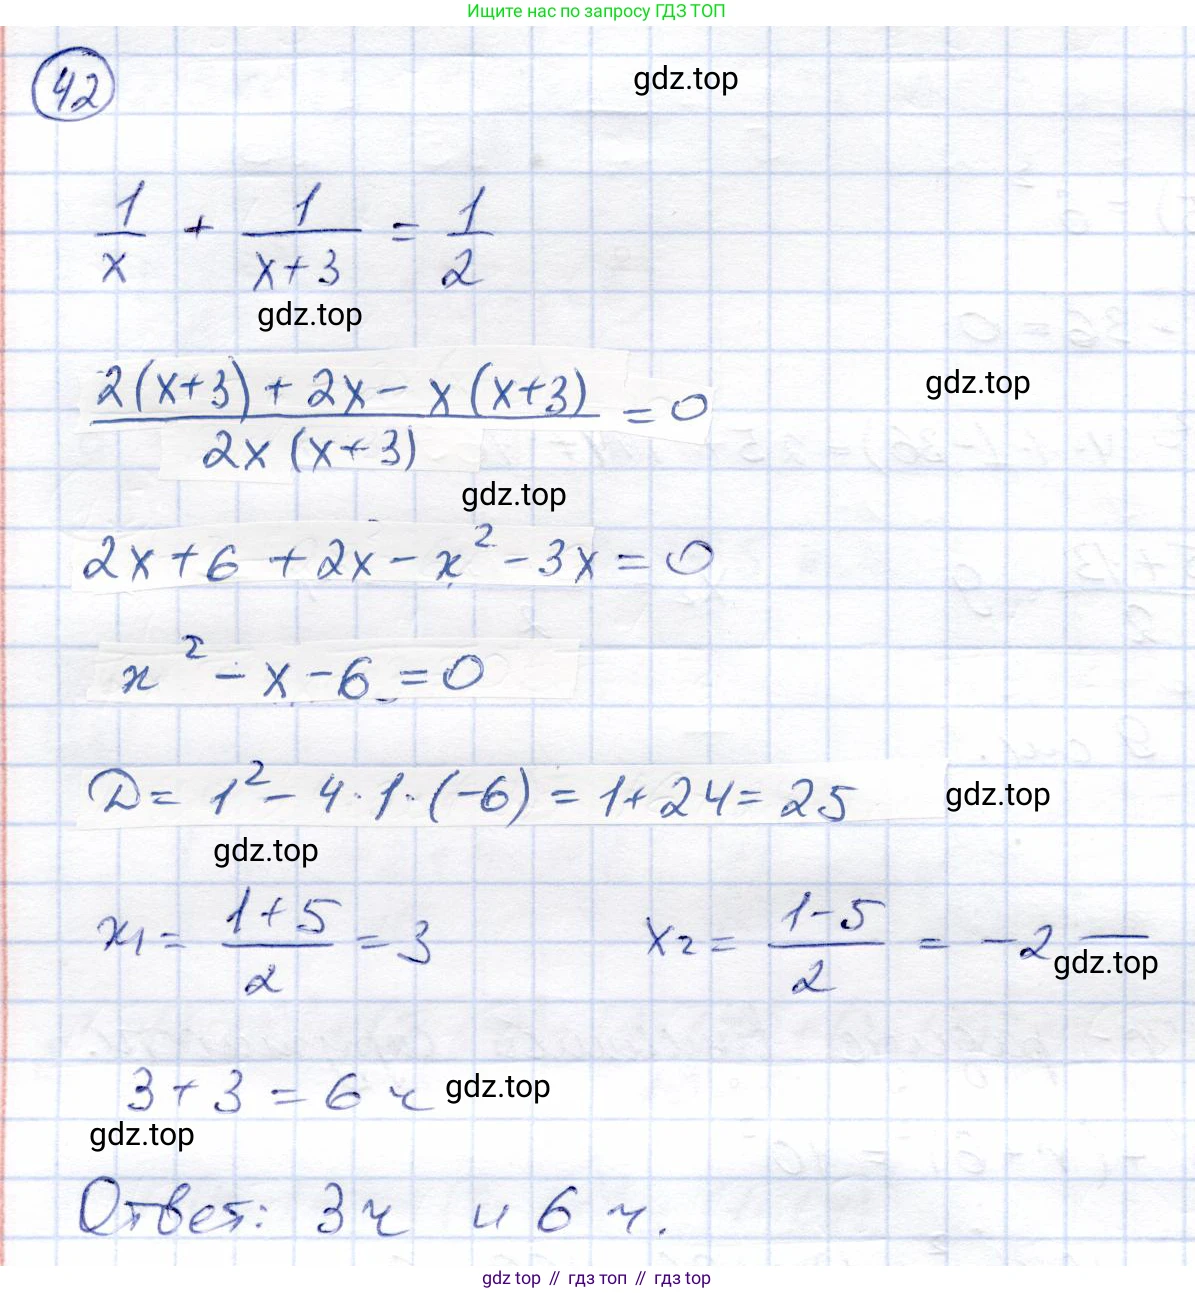 Ищите нас по запросу ГДЗ ТОП
42
gdz.top
1/x + 1/(x+3) = 1/2
gdz.top
(2(x+3) + 2x - x(x+3))/(2x(x+3)) = 0
gdz.top
gdz.top
2x + 6 + 2x - x² - 3x = 0
x² - x - 6 = 0
D = 1² - 4·1·(-6) = 1 + 24 = 25
gdz.top
gdz.top
x₁ = (1+5)/2 = 3 x₂ = (1-5)/2 = -2 —
gdz.top
3 + 3 = 6 ч
gdz.top
gdz.top
Ответ: 3 ч и 6 ч.
gdz.top // гдз топ // гдз top